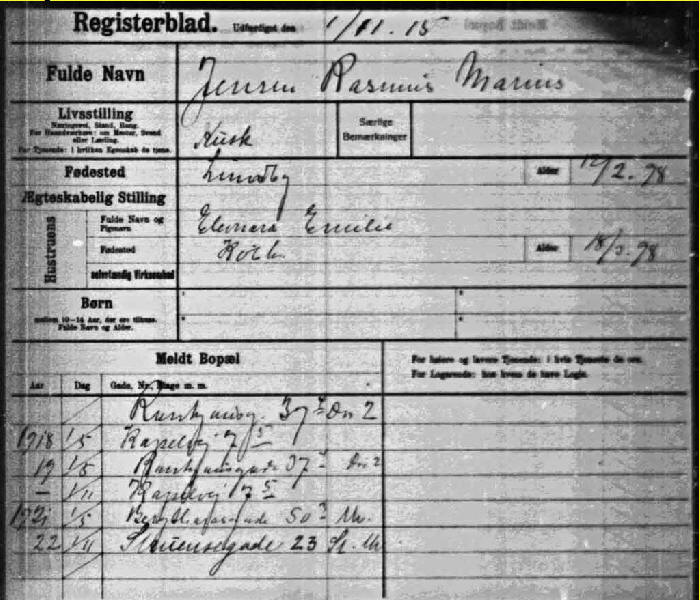 Registerblad. Udfærdiget den 1/11.15
Fulde Navn Jensen Rasmus Marius
Livsstilling
Næringsvej, Stand, Rang.
For Haandværkere: om Mester, Svend
eller Lærling.
For Tjenende: i hvilken Egenskab de tjene.
Kusk
Særlige
Bemærkninger
Fødested Lundby Alder 12/2.98
Ægteskabelig Stilling
Hustruens
Fulde Navn og
Pigenavn
Eleonora Emilie
Fødested Alder 18/3.98
selvstændig Virksomhed
Børn
mellem 10-14 Aar, der ere tilhuse.
Fulde Navn og Alder.
Meldt Bopæl
For højere og lavere Tjenende: i hvis Tjeneste de ere.
For Logerende: hos hvem de have Logis.
Aar Dag Gade, Nr., Etage m. m.
37 2
1918 1/5 Kapelvej 7
19 1/5 37 2
— 1/11 Kapelvej 7
1921 1/5 50
22 1/11 Struensegade 23 St.